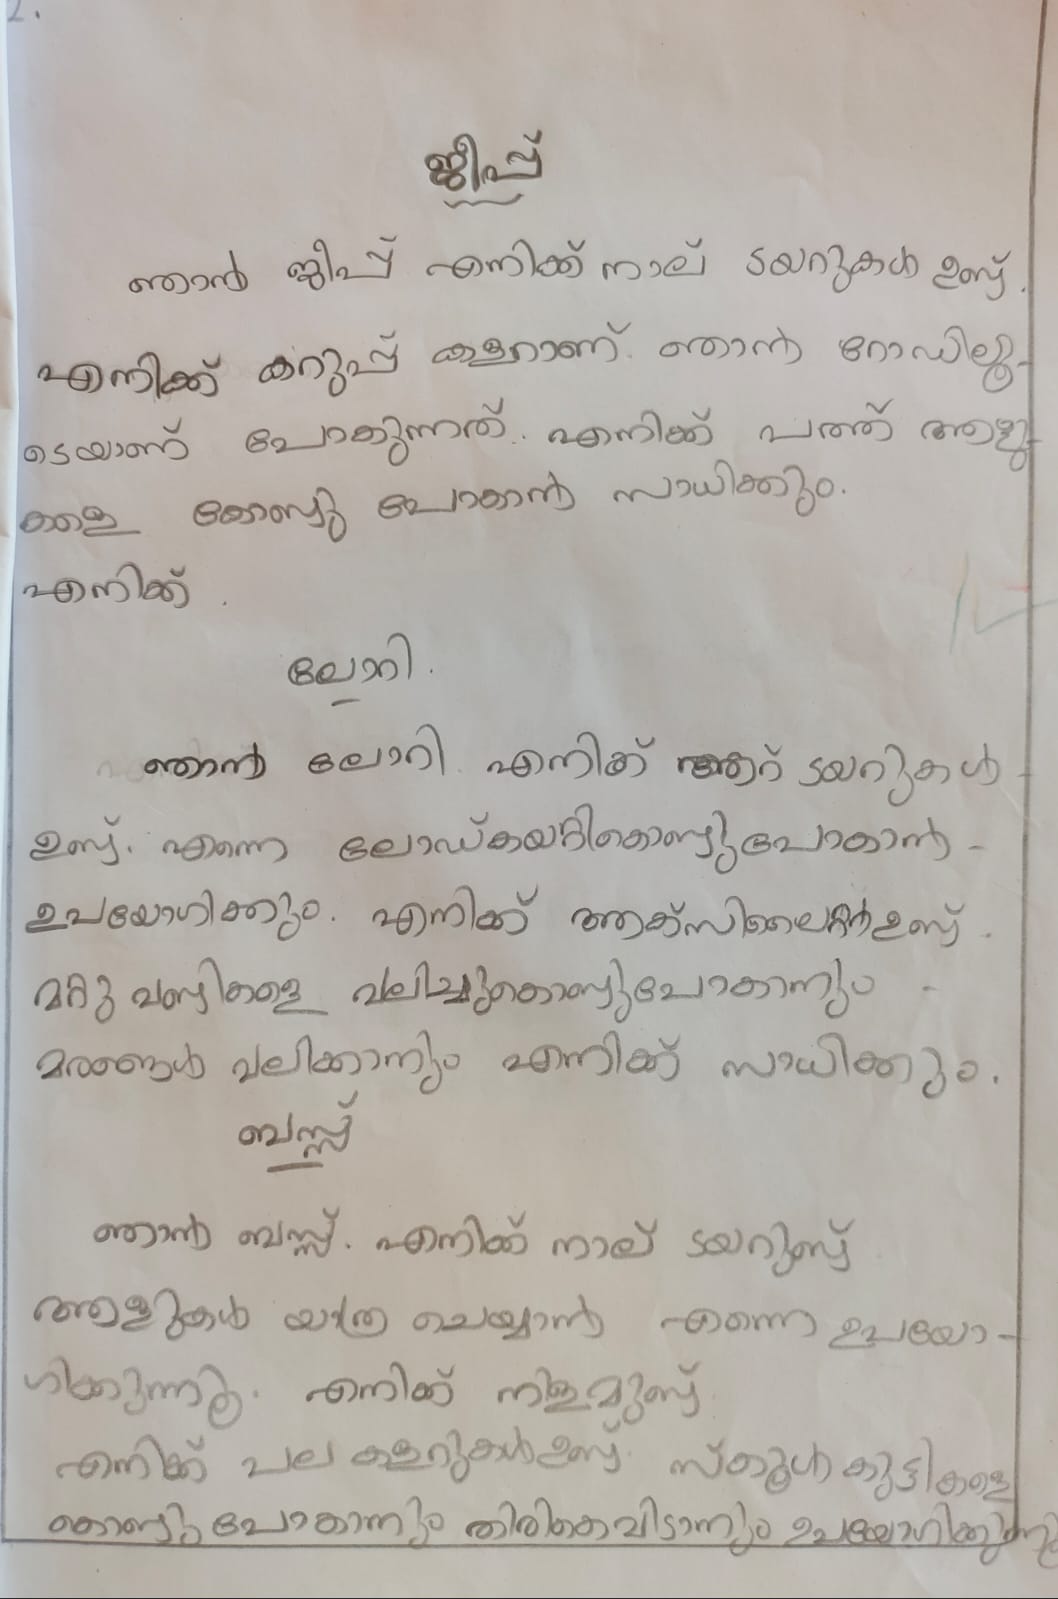 2.
ജീപ്പ്
ഞാൻ ജീപ്പ് എനിക്ക് നാല് ടയറുകൾ ഉണ്ട്.
എനിക്ക് കറുപ്പ് കളറാണ്. ഞാൻ റോഡിലൂ-
ടെയാണ് പോകുന്നത്. എനിക്ക് പത്ത് ആളു-
കളെ കോണ്ടു പോകാൻ സാധിക്കും.
എനിക്ക് .
ലോറി.
ഞാൻ ലോറി. എനിക്ക് ആറ് ടയറുകൾ -
ഉണ്ട്. എന്നെ ലോഡ്കയറ്റികൊണ്ടുപോകാൻ -
ഉപയോഗിക്കും. എനിക്ക് ഉണ്ട്.
മറ്റു വണ്ടികളെ വലിച്ചുകൊണ്ടുപോകാനും -
മരങ്ങൾ വലിക്കാനും എനിക്ക് സാധിക്കും.
ബസ്സ്
ഞാൻ ബസ്സ്. എനിക്ക് നാല് ടയറുണ്ട്
ആളുകൾ യാത്ര ചെയ്യാൻ എന്നെ ഉപയോ-
ഗിക്കുന്നു. എനിക്ക് നിളമുണ്ട്.
എനിക്ക് പല കളറുകൾഉണ്ട്. സ്കൂൾ കുട്ടികളെ
കൊണ്ടു പോകാനും തിരികെവിടാനും ഉപയോഗിക്കുന്നു